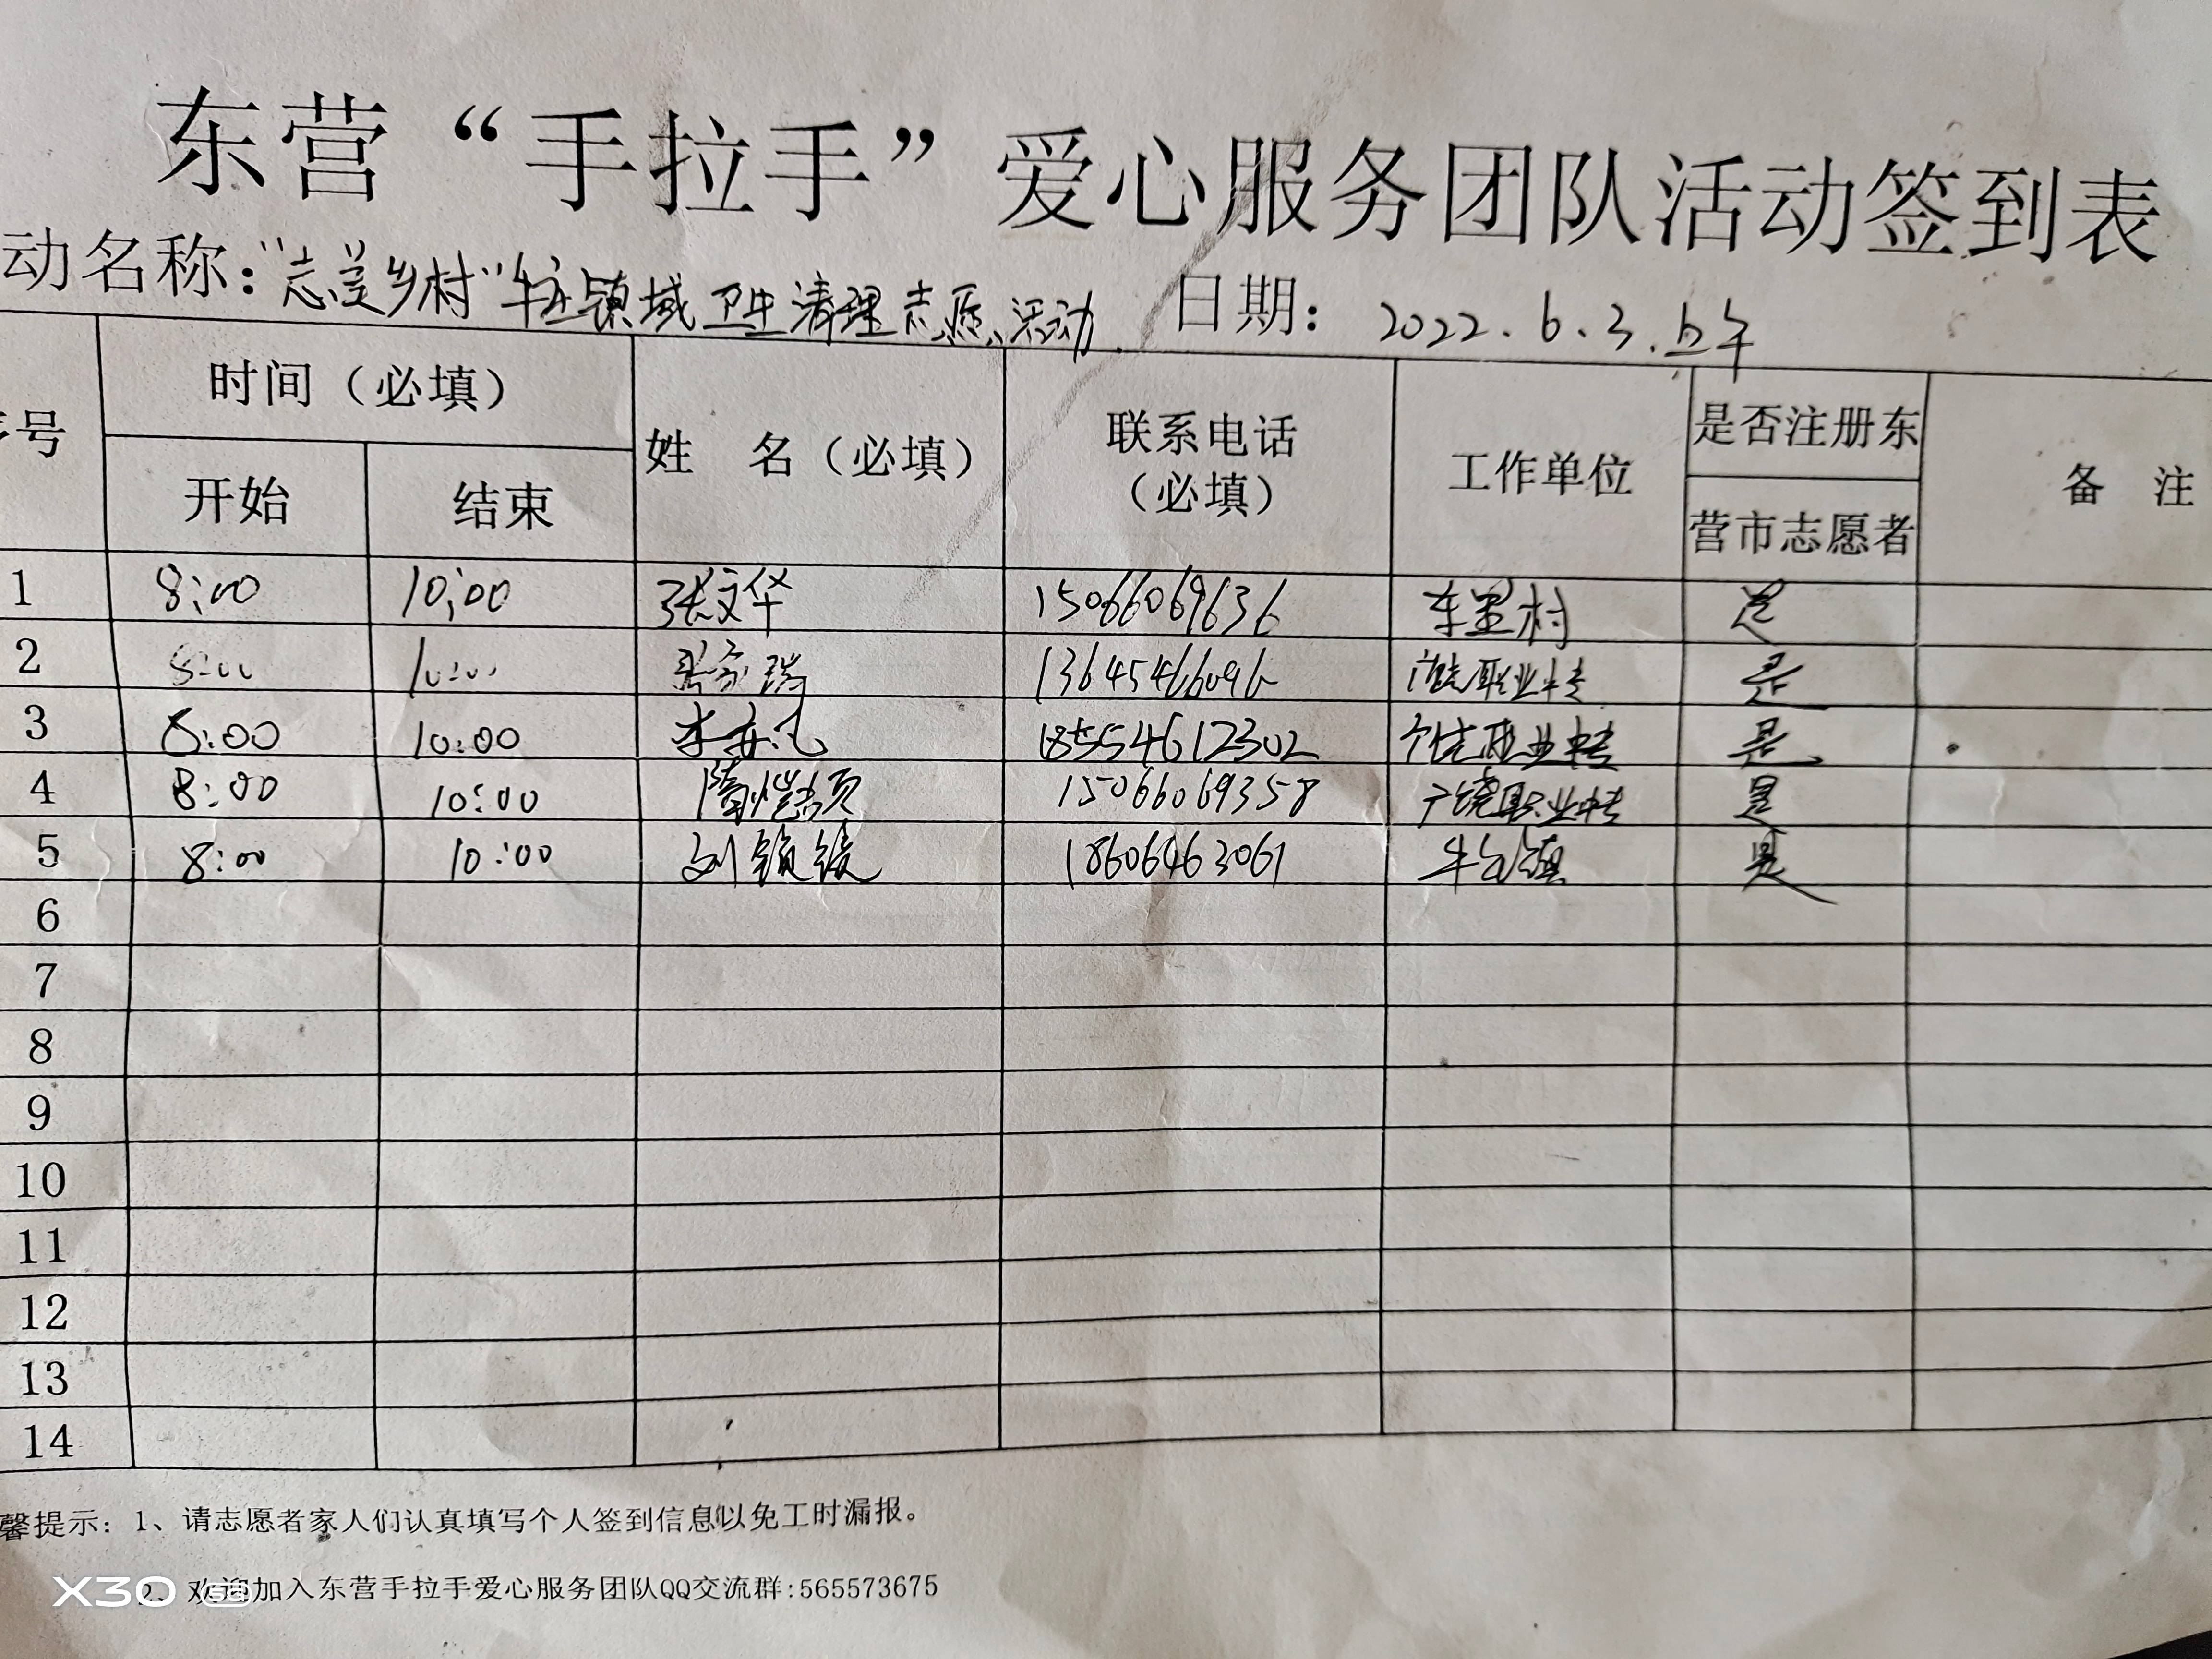 东营“手拉手”爱心服务团队活动签到表
动名称:“志美乡村”牛庄镇域卫生清理志愿活动 日期: 2022.6.3.上午
序号 时间（必填） 姓 名（必填） 联系电话（必填） 工作单位 是否注册东营市志愿者 备 注
开始 结束
1 8:00 10:00 张文华 15066069636 东里村 是
2 8:00 10:00 13645466096 职业中专 是
3 8:00 10:00 18554612302 职业中专 是
4 8:00 10:00 隋 15066069358 广饶职业中专 是
5 8:00 10:00 刘 18606463061 牛 镇 是
6
7
8
9
10
11
12
13
14
馨提示: 1、请志愿者家人们认真填写个人签到信息以免工时漏报。
2、欢迎加入东营手拉手爱心服务团队QQ交流群:565573675
X30